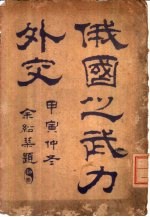 俄國之武力
外交
甲寅仲冬
余紹宋題